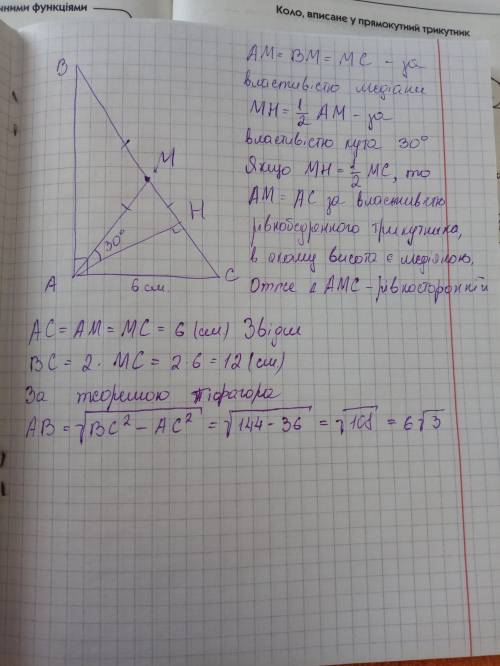 нними функціями
Коло, вписане у прямокутний трикутник
B
M
H
30°
A
6 см.
C
AM = BM = MC - за
властивістю медіани
MH = 1/2 AM - за
властивістю кута 30°
Якщо MH = 1/2 MC, то
AM = AC за властивістю
рівнобедреного трикутника,
в якому висота є медіаною.
Отже △ AMC - рівносторонній
AC = AM = MC = 6 (см) Звідси
BC = 2 · MC = 2 · 6 = 12 (см)
За теоремою Піфагора
AB = √BC² - AC² = √144 - 36 = √108 = 6√3